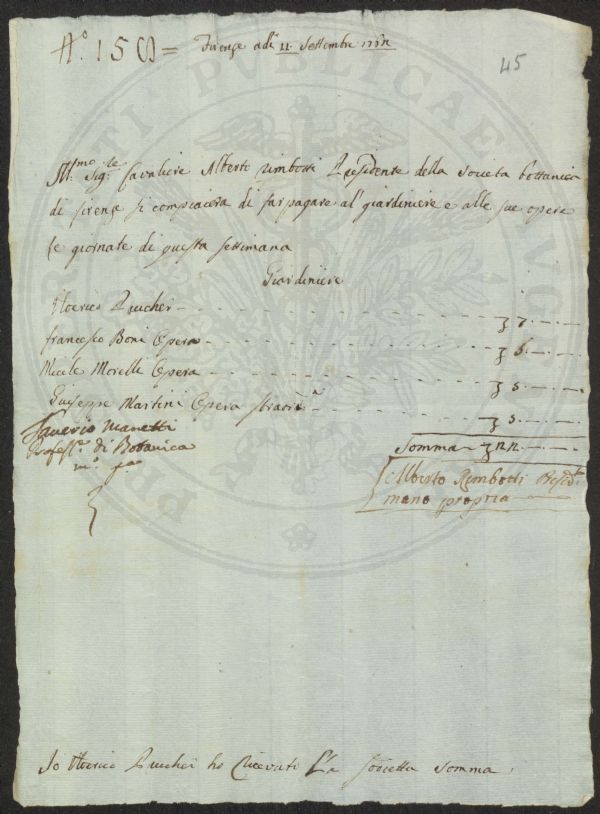 N.° 150 = Firenze adi 11. Settembre 1752
45
Ill:mo Sig:re Cavaliere Alberto Rimbotti Presidente della Societa bottanica
di firenze si compiacera di far pagare al giardiniere e alle sue opere
le giornate di questa settimana
Giardiniere
Rucher 7
francesco Boni Opera 5
Micele Morelli Opera 5
Giuseppe Martini Opera straoria 5
Saverio Manetti
Profess.e di Botanica
m.o p.a
Somma 22
Alberto Rimbotti Presid.e
mano propria
Io Rucher ho Ricevuto la sodetta somma
PUBLICAE